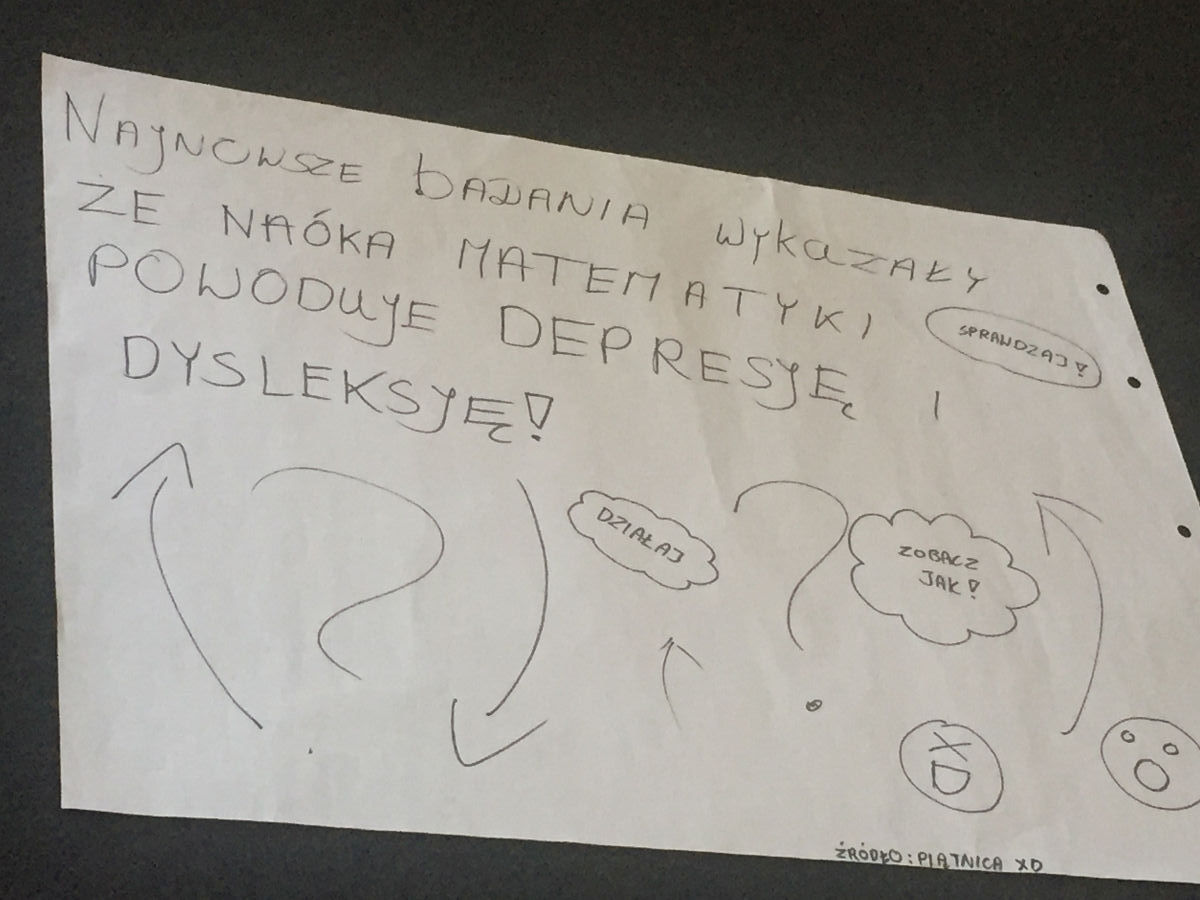 NAJNOWSZE BADANIA WYKAZAŁY
ŻE NAÓKA MATEMATYKI
POWODUJE DEPRESJĘ I
DYSLEKSJĘ!
SPRAWDZAJ!
DZIAŁAJ
ZOBACZ
JAK!
XD
ŹRÓDŁO: PIĄTNICA XD